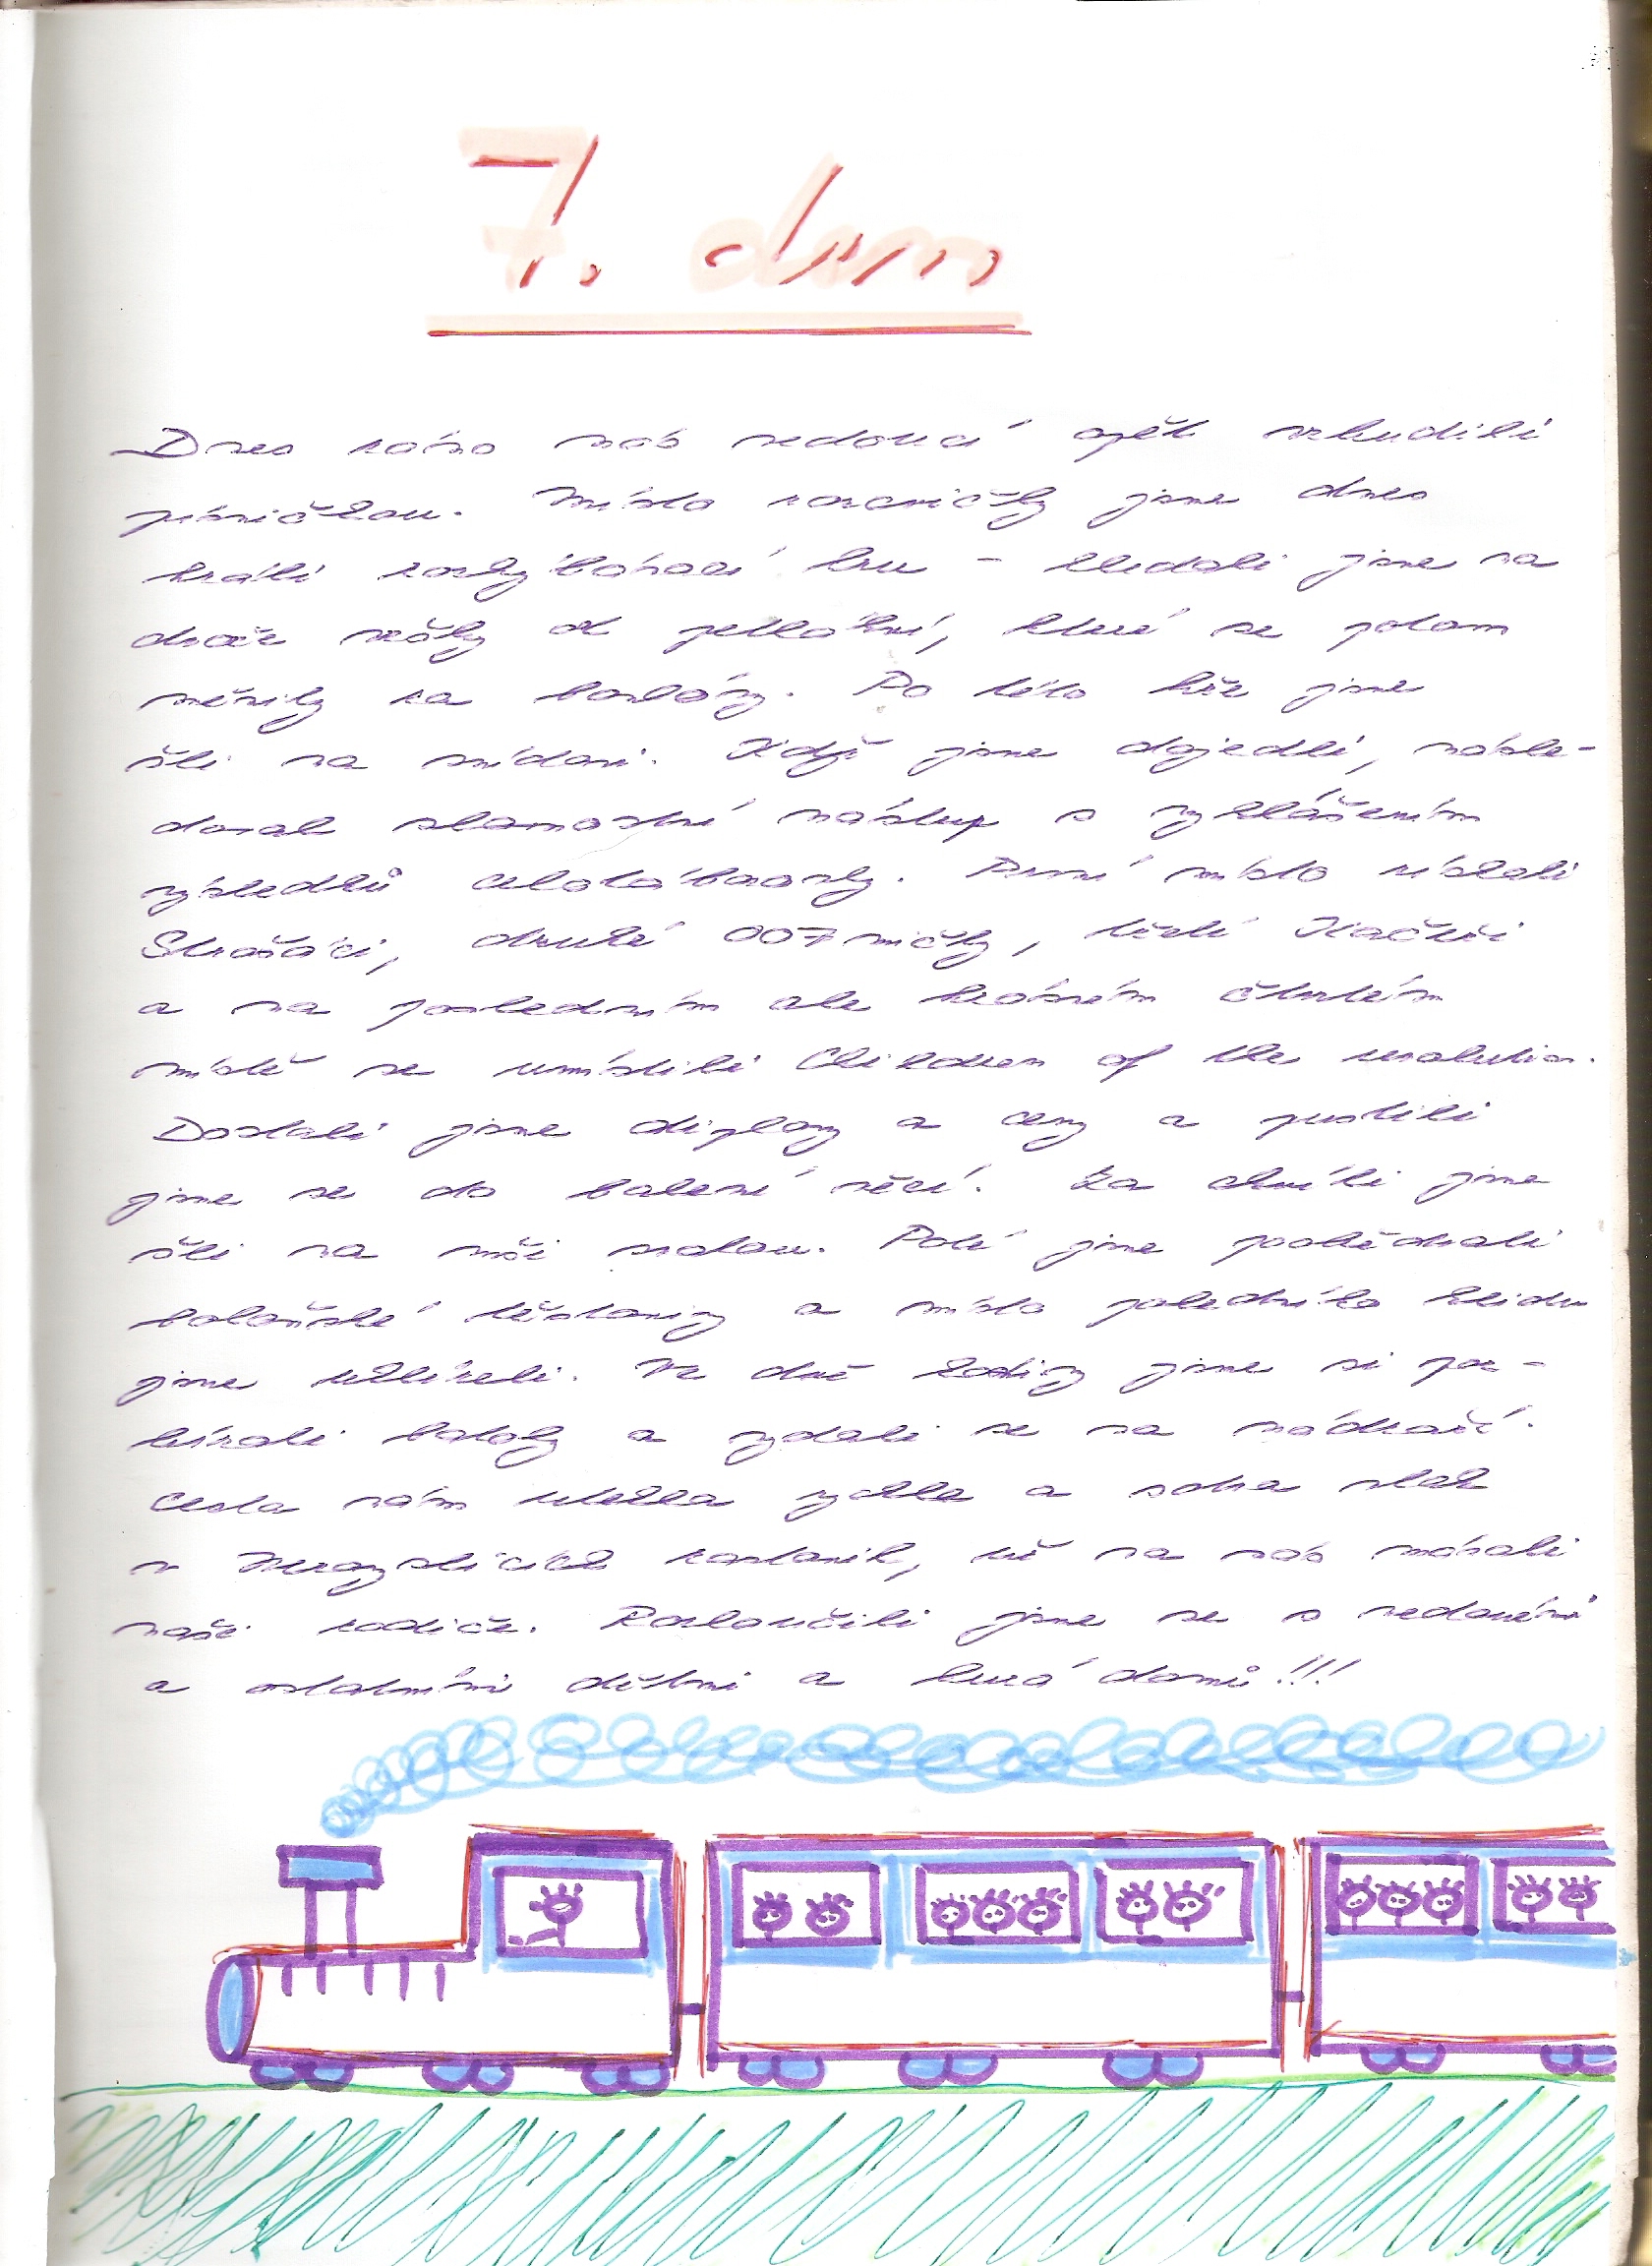 7. den
Dnes ráno nás vedoucí opět vzbudili
písničkou. Místo rozcvičky jsme dnes
hráli rozhýbávací hru – hledali jsme na
dvoře věty od pohádkí, které se potom
měnily za bonbóny. Po této hře jsme
šli na snídani. Když jsme dojedli, násle-
doval slavnostní nástup s vyhlášením
výsledků celotáborovky. První místo získali
Strašáci, druhé 007mičky, třetí Kačeři
a na posledním ale krásném čtvrtém
místě se umístili Children of the revolution.
Dostali jsme diplomy a ceny a pustili
jsme se do balení věcí. Za chvíli jsme
šli na mši svatou. Poté jsme poobědvali
boloňské těstoviny a místo poledního klidu
jsme uklízeli. Ve dvě hodiny jsme si po-
bírali batohy a vydali se na nádraží.
Cesta nám utekla rychle a sotva vlak
v zastavil, už na nás mávali
naši rodiče. Rozloučili jsme se s vedoucími
a ostatními dětmi a hurá domů!!!